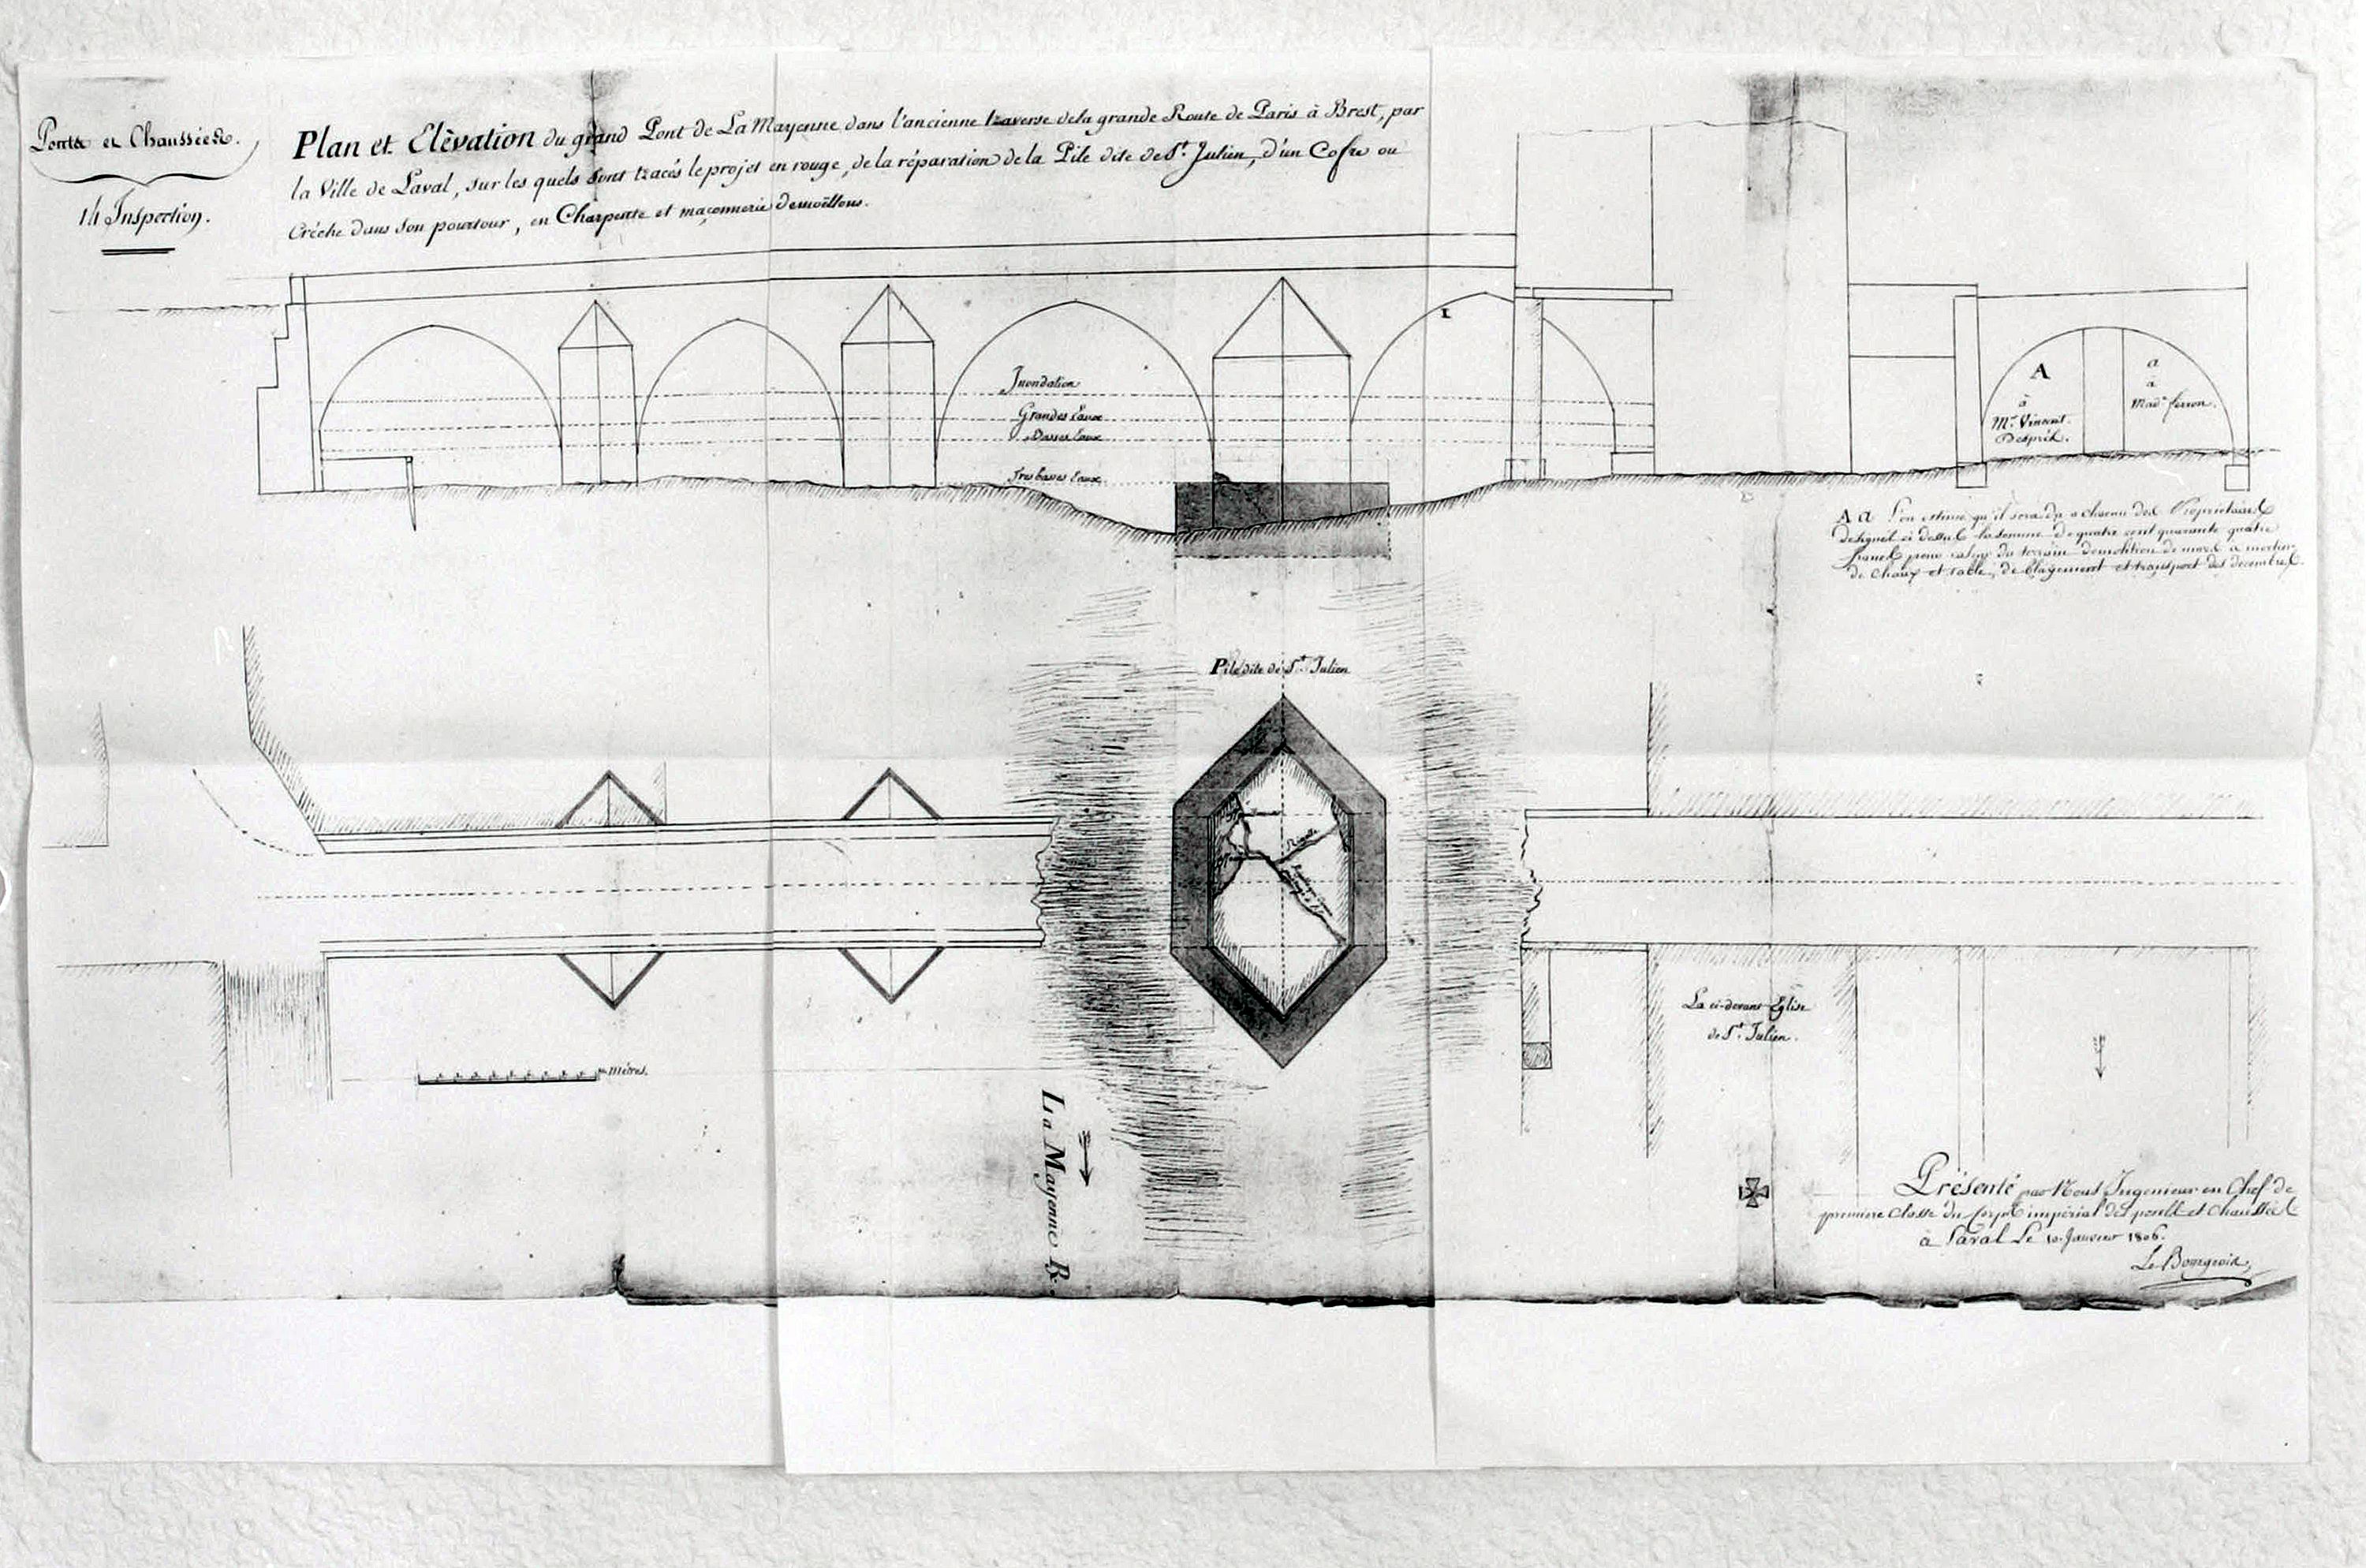 Ponts et Chaussées.
14 Inspection.
Plan et Elèvation du grand Pont de La Mayenne dans l'ancienne traverse de la grande Route de Paris à Brest, par
la Ville de Laval, sur les quels sont tracés le projet en rouge, de la réparation de la Pile dite de St. Julien, d'un Cofre ou
Crêche dans son pourtour, en Charpente et maçonnerie de moëllons.
I
Inondation
Grandes Eaux
Basses Eaux
Tres basses Eaux
A
à
Mr. Vincent
Despréz.
a
à
Made. ferron.
A a L'on estime qu'il sera dû a chacun des Propriétaires
designés ci dessus la somme de quatre cent quarante quatre
francs pour valeur du terrain demolition de murs a mortier
de chaux et sable, deblayement et transport des decombres.
Pile dite de St. Julien
La ci-devant Eglise
de St. Julien.
mètres.
La Mayenne R.
Présenté par Nous Ingenieur en Chef de
premiere Classe du Corps impérial des ponts et Chaussées
à Laval Le 10. Janvier 1806.
Le Bourgeois